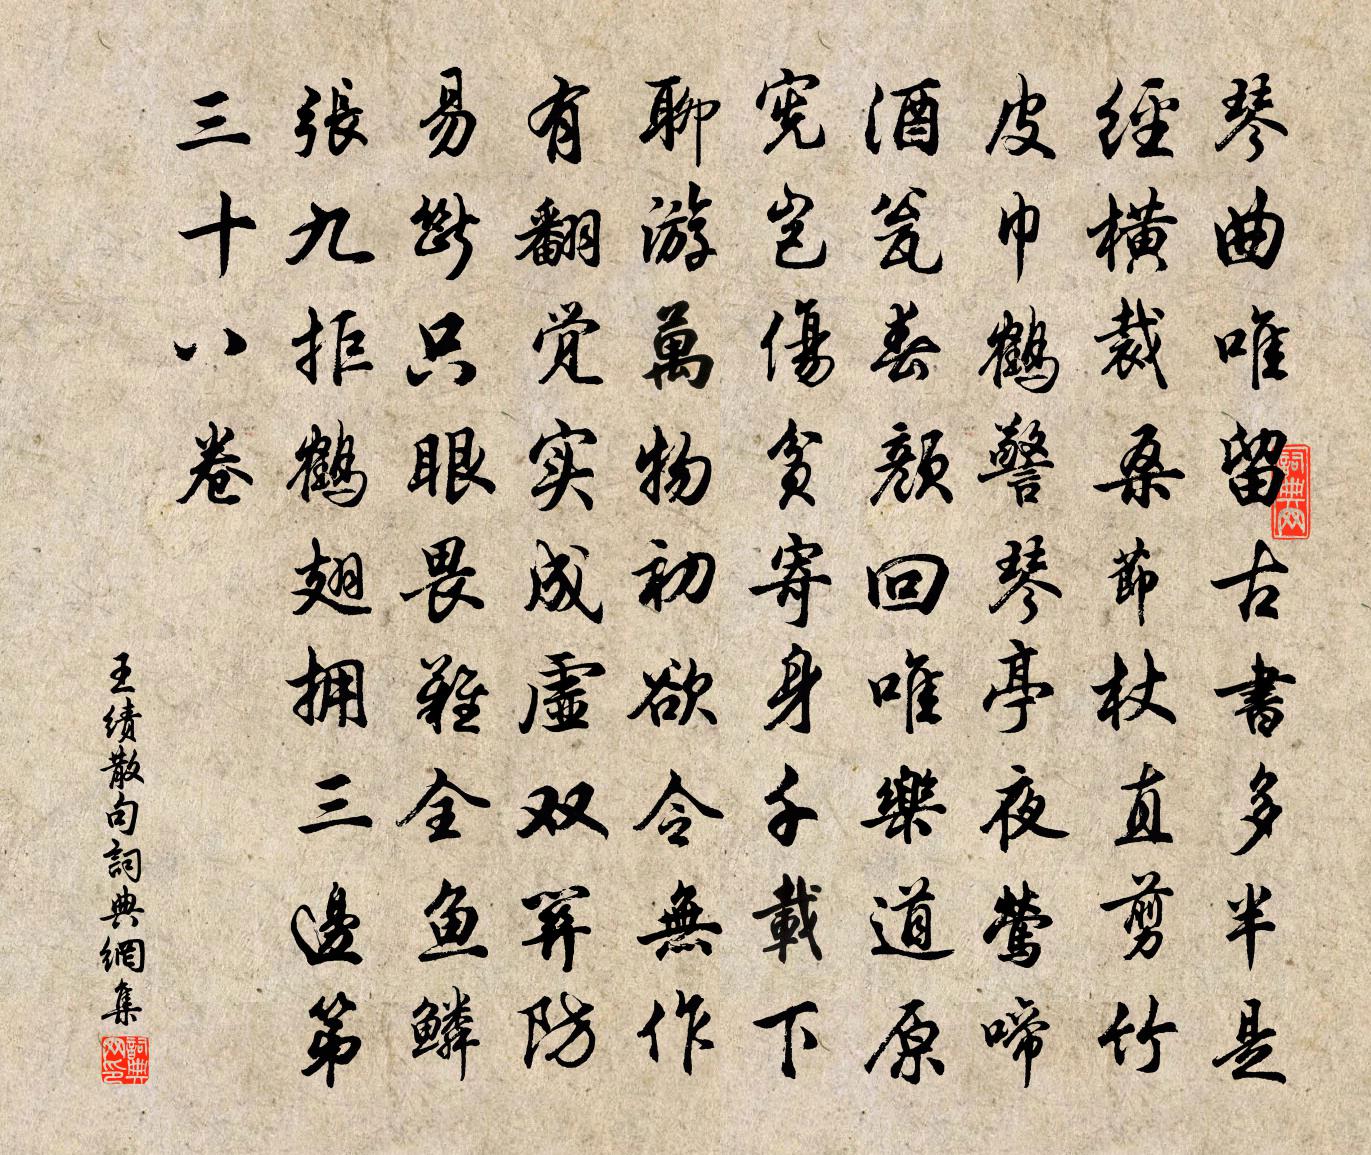 琴曲唯留古書多半是
經横裁桑節杖直剪竹
皮巾鶴警琴亭夜鶯啼
酒瓮春顔回唯樂道原
宪岂傷貧寄身千載下
聊游萬物初欲令無作
有翻觉实成虚双関防
易斷只眼畏難全鱼鳞
張九拒鶴翅拥三邊第
三十八卷
王績散句詞典網集
詞典网
詞典网印